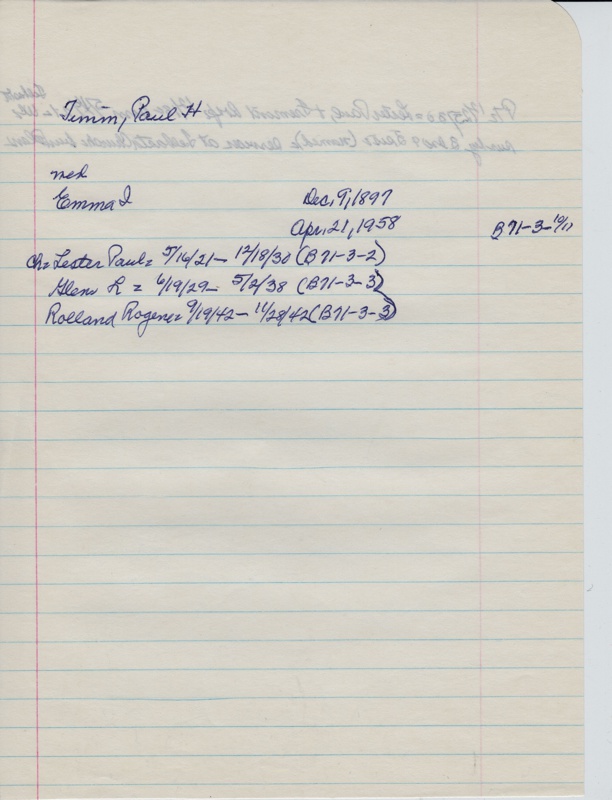 Timm, Paul H
med
Emma I Dec. 9, 1897
Apr. 21, 1958 B71-3-10/11
Ch = Lester Paul = 5/16/21 - 12/18/30 (B71-3-2)
Glenn R = 6/19/29 - 5/2/38 (B71-3-3)
Rolland Rogene = 9/19/42 - 11/28/42 (B71-3-3)